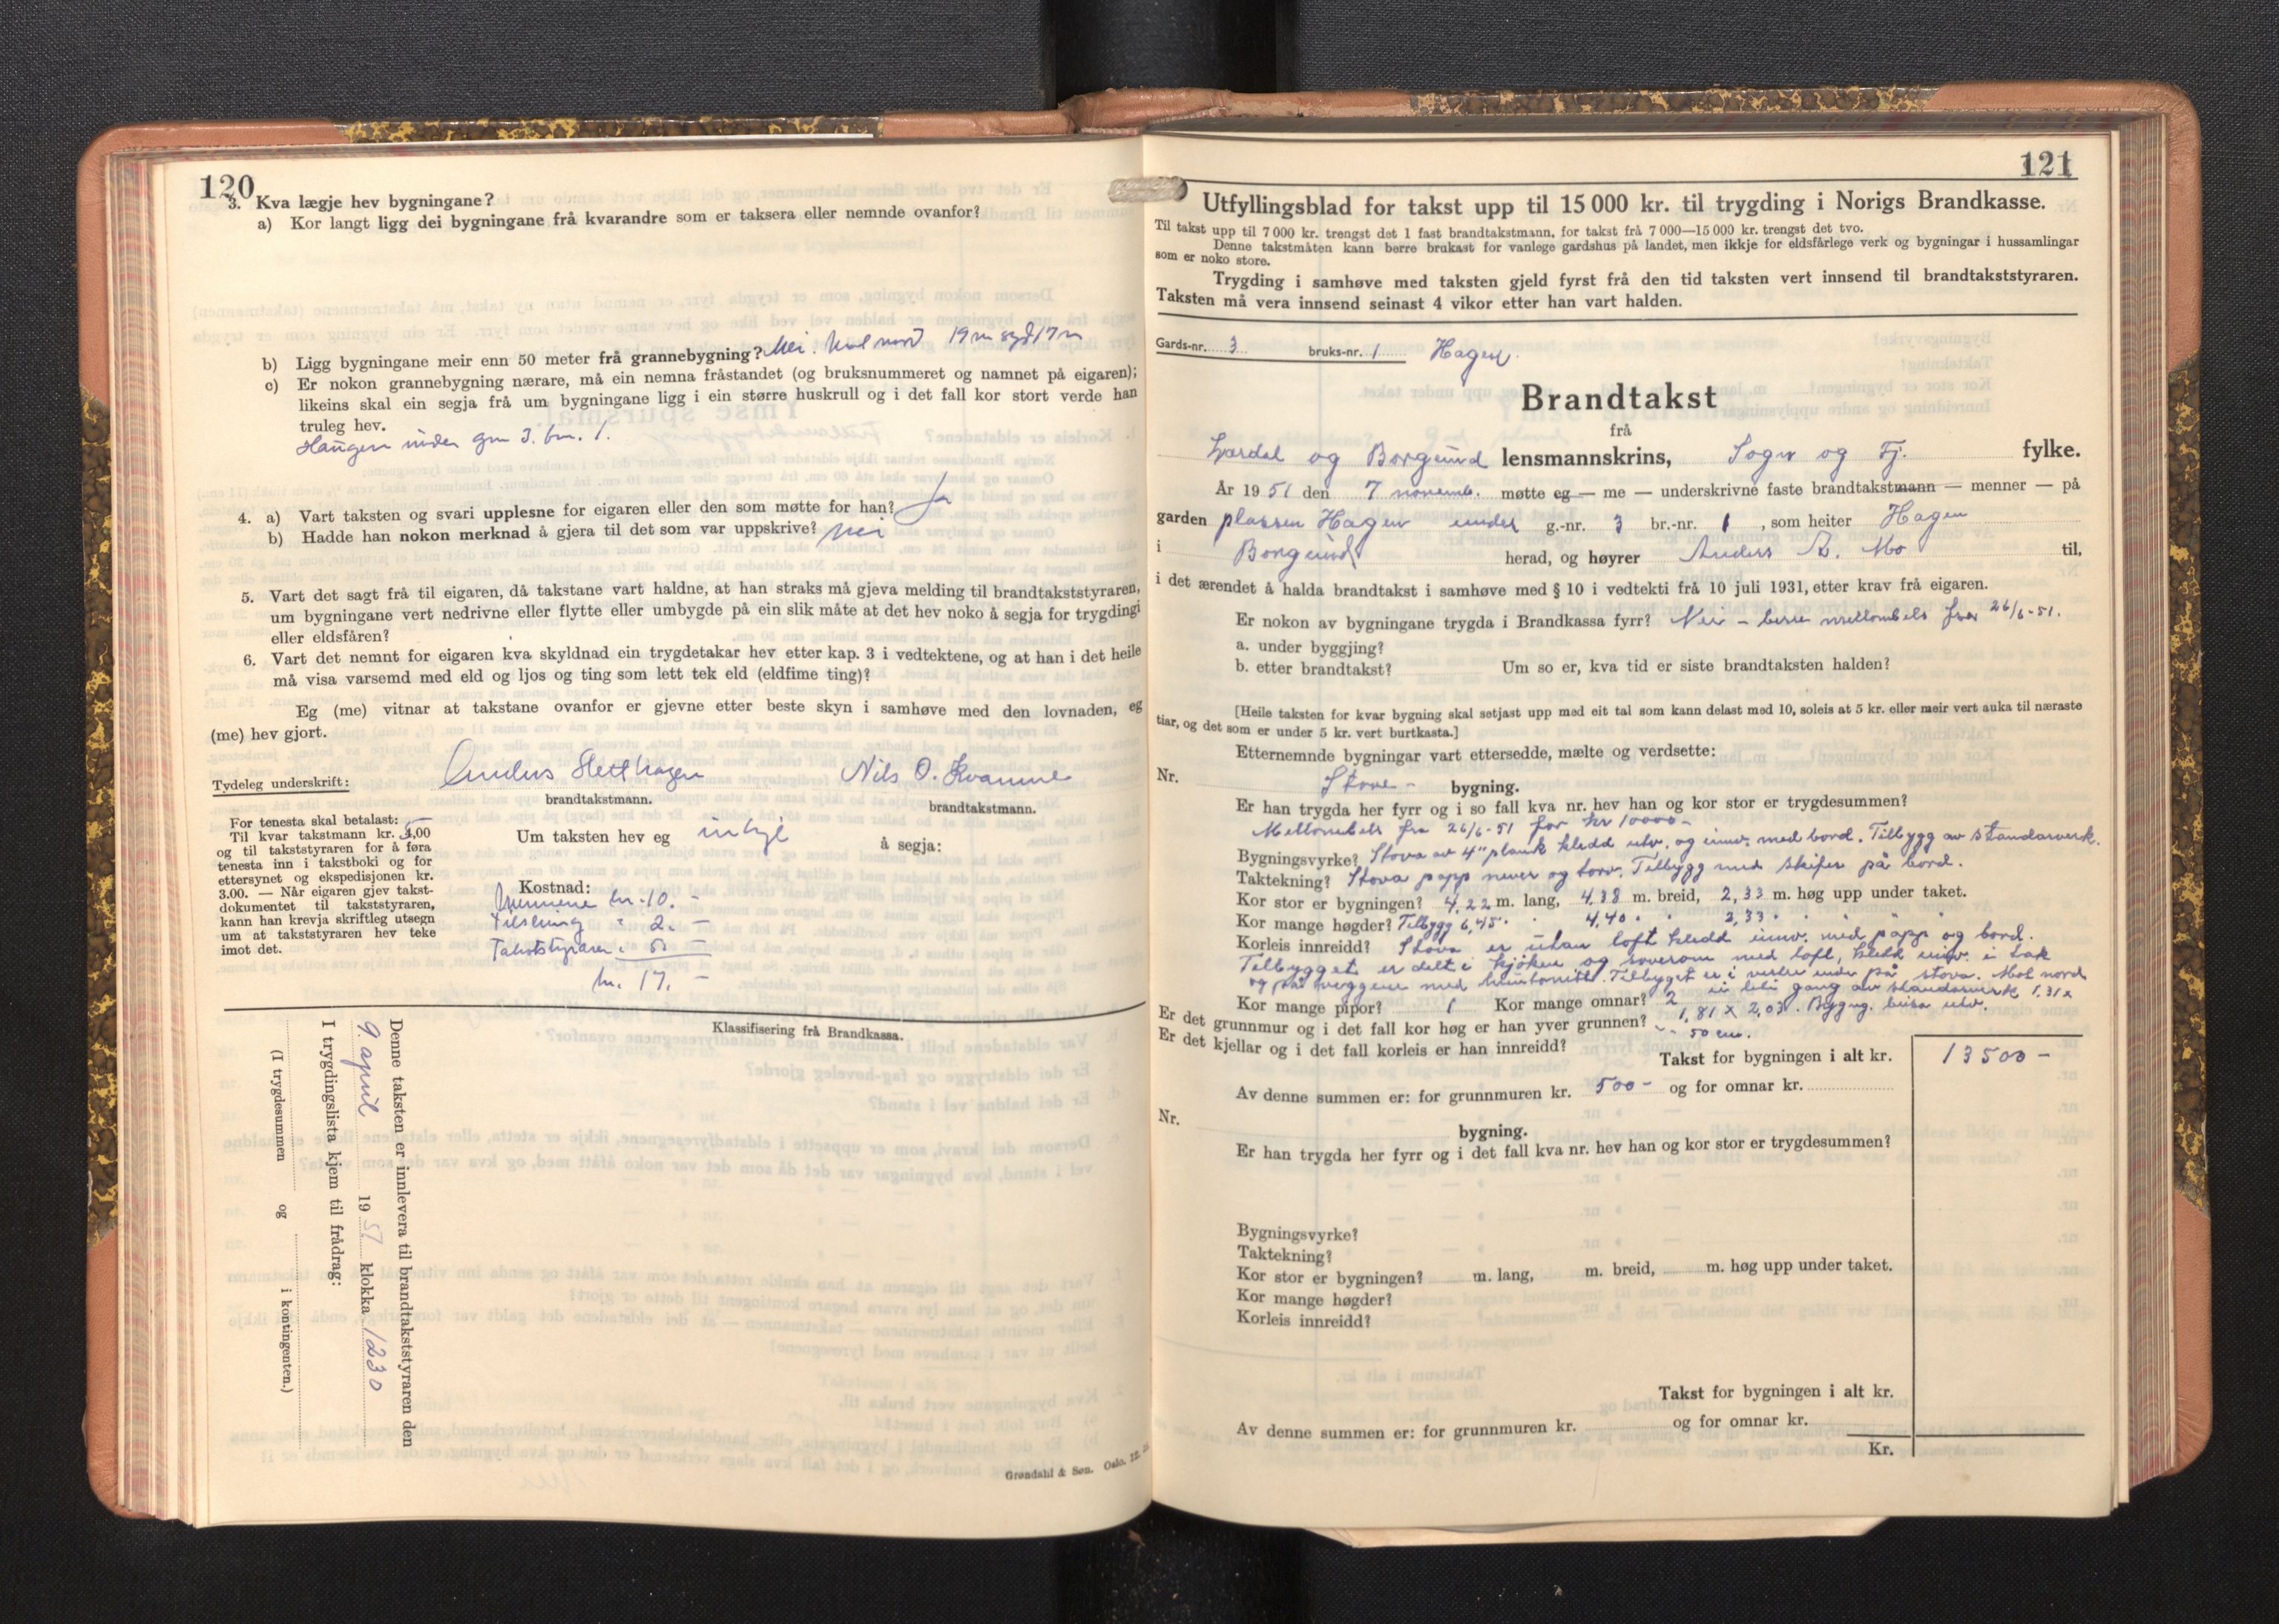 120
3. Kva lægje hev bygningane?
a) Kor langt ligg dei bygningane frå kvarandre som er taksera eller nemnde ovanfor?
b) Ligg bygningane meir enn 50 meter frå grannebygning? Nei. Mot nord 19 m syd 17 m
c) Er nokon grannebygning nærare, må ein nemna fråstandet (og bruksnummeret og namnet på eigaren);
likeins skal ein segja frå um bygningane ligg i ein større huskrull og i det fall kor stort verde han
truleg hev.
Haugen under gnr 3. bnr. 1.
4. a) Vart taksten og svari upplesne for eigaren eller den som møtte for han? Ja
b) Hadde han nokon merknad å gjera til det som var uppskrive? Nei
5. Vart det sagt frå til eigaren, då takstane vart haldne, at han straks må gjeva melding til brandtakststyraren,
um bygningane vert nedrivne eller flytte eller umbygde på ein slik måte at det hev noko å segja for trygdingi
eller eldsfåren?
6. Vart det nemnt for eigaren kva skyldnad ein trygdetakar hev etter kap. 3 i vedtektene, og at han i det heile
må visa varsemd med eld og ljos og ting som lett tek eld (eldfime ting)?
Eg (me) vitnar at takstane ovanfor er gjevne etter beste skyn i samhøve med den lovnaden, eg
(me) hev gjort.
Tydeleg underskrift: Anders Hetthagen Nils O. Kvamme
brandtakstmann. brandtakstmann.
For tenesta skal betalast:
Til kvar takstmann kr. 4,00 5
og til takststyraren for å føra
tenesta inn i takstboki og for
ettersynet og ekspedisjonen kr.
3.00. — Når eigaren gjev takst-
dokumentet til takststyraren,
kann han krevja skriftleg utsegn
um at takststyraren hev teke
imot det.
Um taksten hev eg inkje å segja:
Kostnad:
Mennene kr. 10. –
Tilsening " 2. –
Takststyraren " 5 –
kr. 17. –
Klassifisering frå Brandkassa.
Denne taksten er innlevera til brandtakststyraren den
9. april 1951 klokka 1230
I trygdingslista kjem til frådrag:
(I trygdesummen og i kontingenten.)
Grøndahl & Søn. Oslo.
121
Utfyllingsblad for takst upp til 15 000 kr. til trygding i Norigs Brandkasse.
Til takst upp til 7 000 kr. trengst det 1 fast brandtakstmann, for takst frå 7 000—15 000 kr. trengst det tvo.
Denne takstmåten kann berre brukast for vanlege gardshus på landet, men ikkje for eldsfårlege verk og bygningar i hussamlingar
som er noko store.
Trygding i samhøve med taksten gjeld fyrst frå den tid taksten vert innsend til brandtakststyraren.
Taksten må vera innsend seinast 4 vikor etter han vart halden.
Gards-nr. 3 bruks-nr. 1 Hagen.
Brandtakst
frå
Lærdal og Borgund lensmannskrins, Sogn og Fj. fylke.
År 1951 den 7 novemb. møtte eg — me — underskrivne faste brandtakstmann — menner — på
garden plassen Hagen under g.-nr. 3 br.-nr. 1, som heiter Hagen
i Borgund herad, og høyrer Anders A. Mo til,
i det ærendet å halda brandtakst i samhøve med § 10 i vedtekti frå 10 juli 1931, etter krav frå eigaren.
Er nokon av bygningane trygda i Brandkassa fyrr? Nei – berre mellombels frå 26/6-51.
a. under byggjing?
b. etter brandtakst? Um so er, kva tid er siste brandtaksten halden?
[Heile taksten for kvar bygning skal setjast upp med eit tal som kann delast med 10, soleis at 5 kr. eller meir vert auka til næraste
tiar, og det som er under 5 kr. vert burtkasta.]
Etternemnde bygningar vart ettersedde, mælte og verdsette:
Nr. Stove- bygning.
Er han trygda her fyrr og i so fall kva nr. hev han og kor stor er trygdesummen?
Mellombels frå 26/6-51 for kr 10000-
Bygningsvyrke? Stova av 4" plank kledd utv. og innv. med bord. Tilbygg av standarverk.
Taktekning? Stova papp never og torv. Tilbygg med skifer på bord.
Kor stor er bygningen? 4,22 m. lang, 4,38 m. breid, 2,33 m. høg upp under taket.
Kor mange høgder? Tilbygg 6,45 " 4,40 " " 2,33 "
Korleis innreidd? Stova er utan loft kledd innv. med papp og bord.
Tilbygget er delt i kjøken og soverom med loft, kledd innv. i tak
og på veggene med huntonitt. Tilbygget er i vestre ende på stova. Mot nord
Kor mange pipor? 1 Kor mange omnar? 2 ein liten gang av standarverk 1,31 x
Er det grunnmur og i det fall kor høg er han yver grunnen? 1,81 x 2,03. Bygng. beisa utv.
50 cm.
Er det kjellar og i det fall korleis er han innreidd?
Takst for bygningen i alt kr. 13500 –
Av denne summen er: for grunnmuren kr. 500 – og for omnar kr.
Nr. bygning.
Er han trygda her fyrr og i det fall kva nr. hev han og kor stor er trygdesummen?
Bygningsvyrke?
Taktekning?
Kor stor er bygningen? m. lang, m. breid, m. høg upp under taket.
Kor mange høgder?
Korleis innreidd?
Takst for bygningen i alt kr.
Av denne summen er: for grunnmuren kr. og for omnar kr.
Kr.